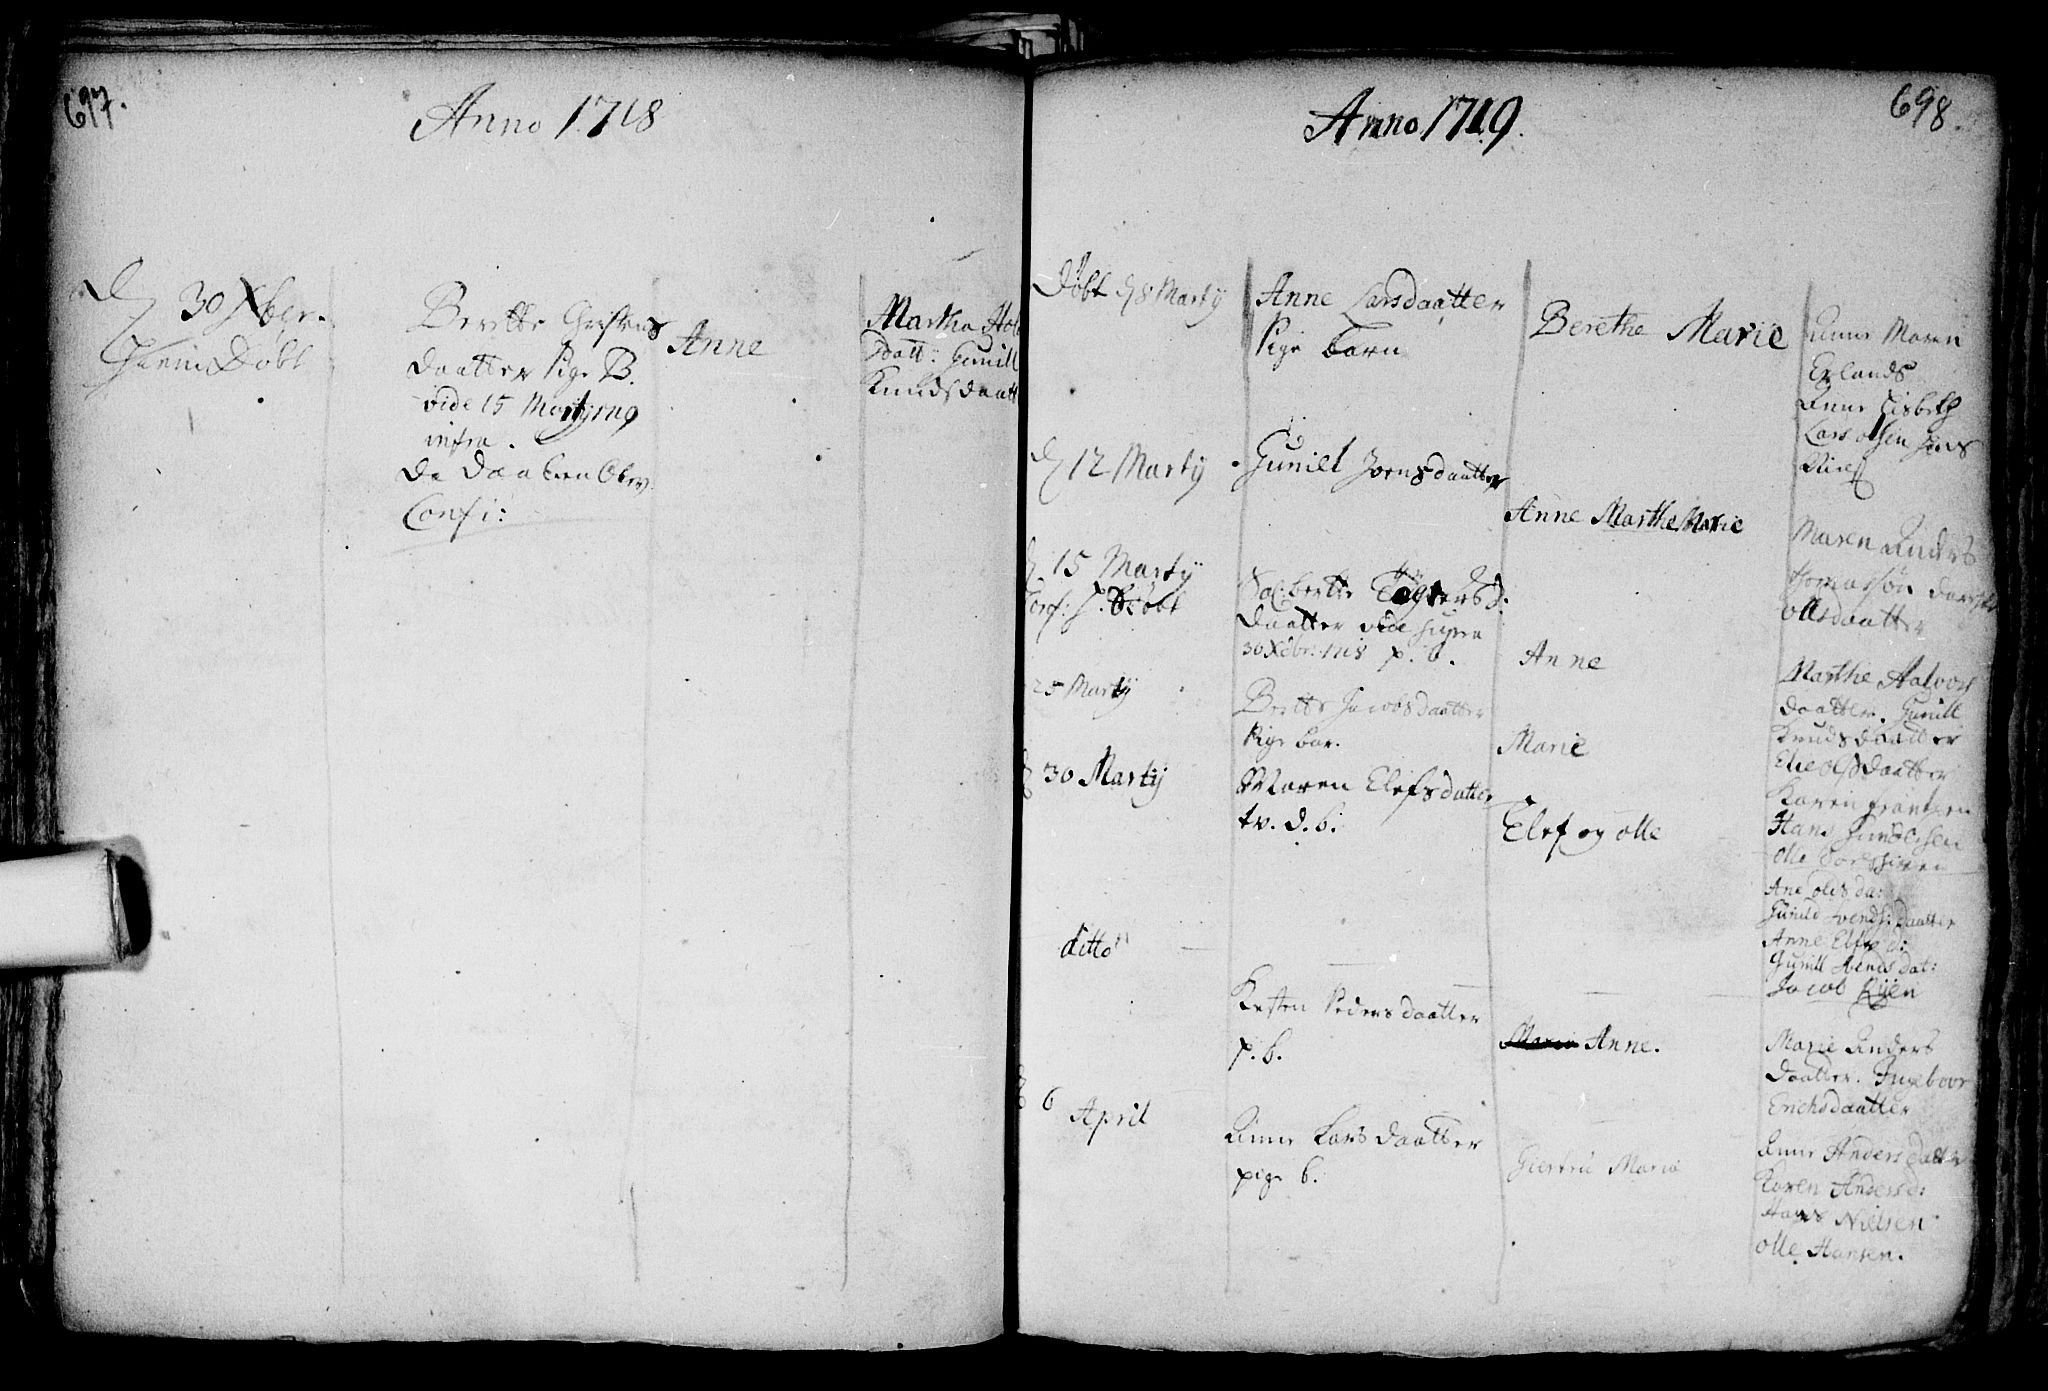 697.
Anno 1718
d 30 Xber.
Hiemdøbt
Berette Christens
daatter Pige B.
vide 15 Marty 1719
infra.
da daaben blev
Confi:
Anne
Martha Hol
daatt: Gunill
Knudsdaatt
698.
Anno 1719.
Døbt d 8 Martij
Anne Larsdaatter
Pige barn
Berethe Marie
Anne Maren
Erlands
Anne Lisbeth
Lars Olsen
d 12 Martij
Gunild Joensdaatter
Anne Marthe Marie
Maren Anders
Thomassøn
Olsdaatter
d 15 Martij
Conf: H. Døbt
daatter vide supra
30 Xbr: 1718 p. b.
Anne
Marthe Halvors
daatter. Gunill
Knudsdaatter
25 Martij
Berete Jacobsdaatter
Pige bar.
Marie
Elie Olsdaatter
Karen Frantzen
Hans
Olle
30 Martij
Maren Elefsdatter
tv. d. b.
Elef og Olle
Ane Olsda:
Gunild Svends:daatter
Anne Elfs d:
Gunill Svendsdat:
Jacob Rÿen
ditto
Kesten Pedersdaatter
p. b.
Anne.
Marie Anders
daatter. Ingeboor
Erichsdaatter
6 April
Anne Larsdaatter
pige b.
Giertru Marie
Anne Andersdaatter
Karen Andersd:
Hans Nielsen
Olle Hansen.